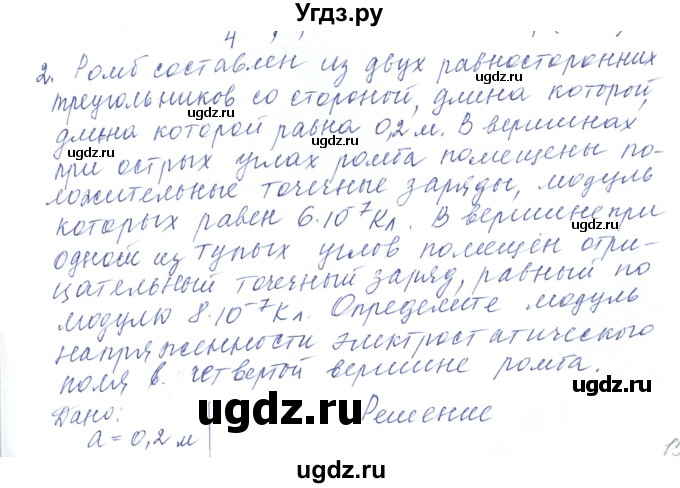 Угдз.ру
2. Ромб составлен из двух равносторонних
треугольников со стороной, длина которой,
длина которой равна 0,2 м. В вершинах
при острых углах ромба помещены по-
ложительные точечные заряды, модуль
которых равен 6·10⁻⁷ Кл. В вершине при
одной из тупых углов помещён отри-
цательный точечный заряд, равный по
модулю 8·10⁻⁷ Кл. Определите модуль
напряженности электростатического
поля в четвертой вершине ромба.
Дано: Решение
a = 0,2 м
ugdz.ru
ugdz.ru
ugdz.ru
ugdz.ru
ugdz.ru
ugdz.ru
ugdz.ru
ugdz.ru
ugdz.ru
ugdz.ru
ugdz.ru
ugdz.ru
ugdz.ru